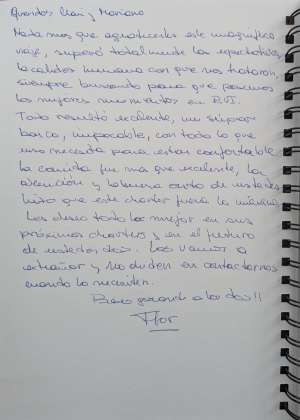 Queridos Mari y Mariano
Nada mas que agradecerles este magnifico
viaje, superó totalmente las expectativas,
la calidez humana con que nos trataron,
siempre buscando para que pasemos
los mejores momentos en BVI.
Todo resultó excelente, un super
barco, impecable, con todo lo que
uno necesita para estar confortable
la comida fue mas que excelente, la
atencion y buena onda de ustedes
hizo que este charter fuera lo máximo.
Les deseo todo lo mejor en sus
próximos charters y en el futuro
de ustedes dos. Los vamos a
extrañar y no duden en contactarnos
cuando lo necesiten.
Beso grande a los dos!!
Flor